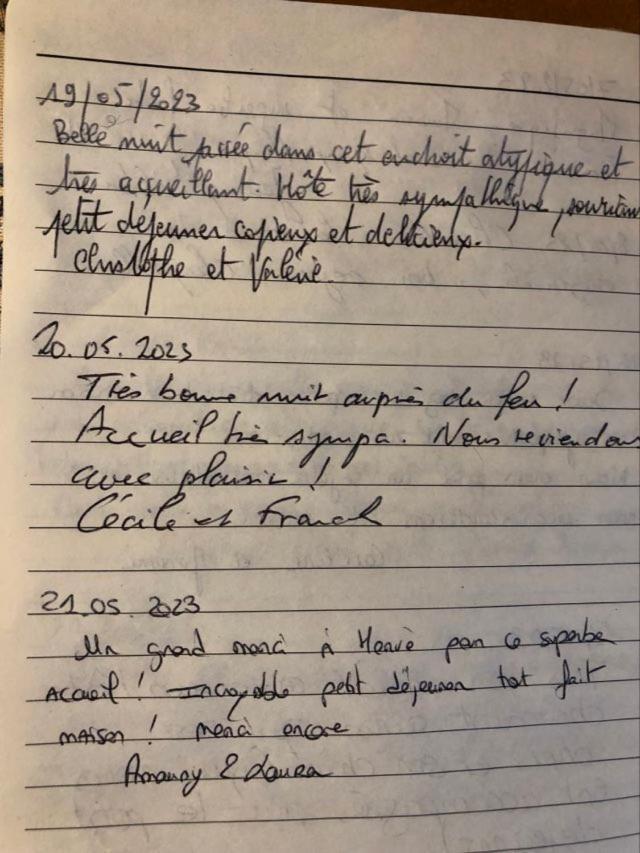 19/05/2023
Belle nuit passée dans cet endroit atypique et
très acqueillant. Hôte très sympathique, sourian
petit dejeuner copieux et delicieux.
Christophe et Valérie
20.05.2023
Très bonne nuit auprès du feu !
Accueil très sympa. Nous reviendons
avec plaisir !
Cécile et Franck
21.05.2023
Un grand merci à Hervé pour ce superbe
Accueil ! Incroyable petit déjeuner tout fait
maison ! merci encore
Amaury & Laura